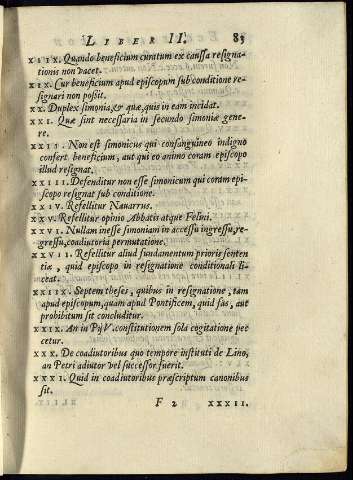 LIBER II. 83
XIIX. Quando beneficium curatum ex caussa resigna-
tionis non vacet.
XIX. Cur beneficium apud episcopum sub conditione re-
signari non possit.
XX. Duplex simonia, & quæ, quis in eam incidat.
XXI. Quæ sint necessaria in secundo simoniæ gene-
re.
XXII. Non est simonicus qui consanguineo indigno
confert beneficium, aut qui eo animo coram episcopo
illud resignat.
XXIII. Defenditur non esse simonicum qui coram epi-
scopo resignat sub conditione.
XXIV. Refellitur Nauarrus.
XXV. Refellitur opinio Abbatis atque Felini.
XXVI. Nullam inesse simoniam in accessu ingressu, re-
gressu, coadiutoria permutatione.
XXVII. Refellitur aliud fundamentum prioris senten
tiæ, quid episcopo in resignatione conditionali li-
ceat.
XXIIX. Septem theses, quibus in resignatione, tam
apud episcopum, quam apud Pontificem, quid fas, aut
prohibitum sit concluditur.
XXIX. An in Pij V. constitutionem sola cogitatione pec
cetur.
XXX. De coadiutoribus quo tempore instituti de Lino,
an Petri adiutor vel successor fuerit.
XXXI. Quid in coadiutoribus præscriptum canonibus
sit.
F 2 XXXII.